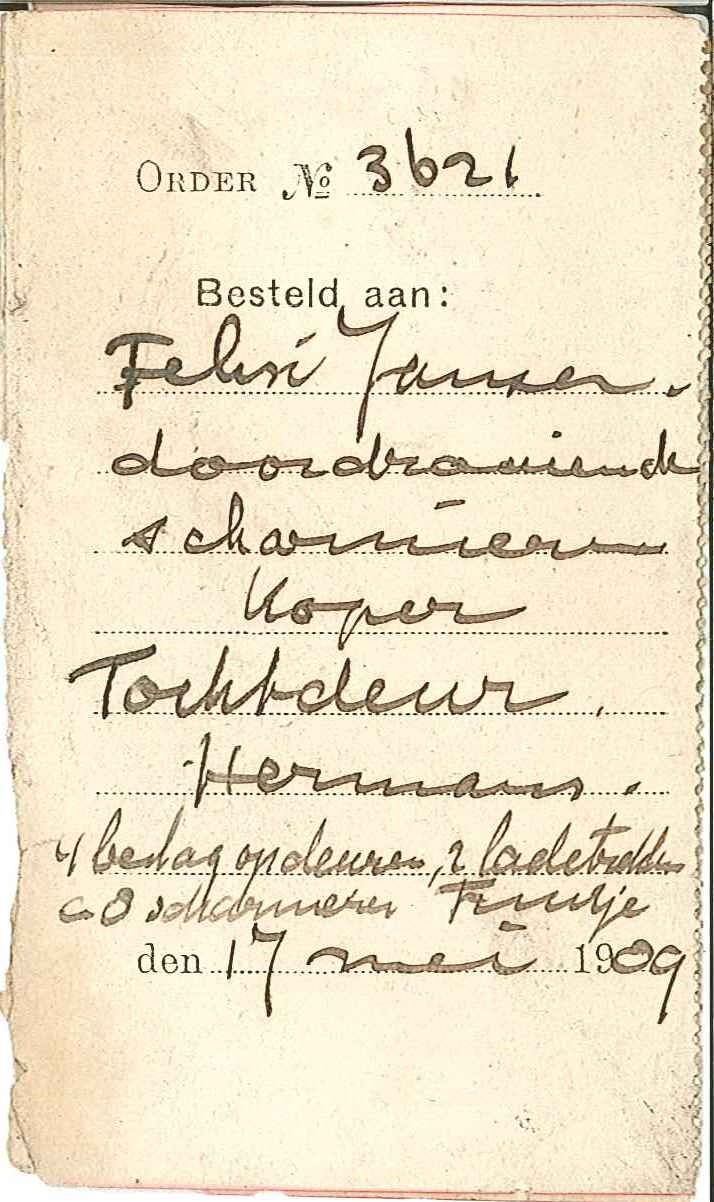 ORDER No 3621
Besteld aan:
Felix Jansen.
doordraaiende
scharnieren
Koper
Tochtdeur.
Hermans.
4 beslag op deuren, 2 ladetrekkers
en 8 scharnieren
den 17 mei 1909